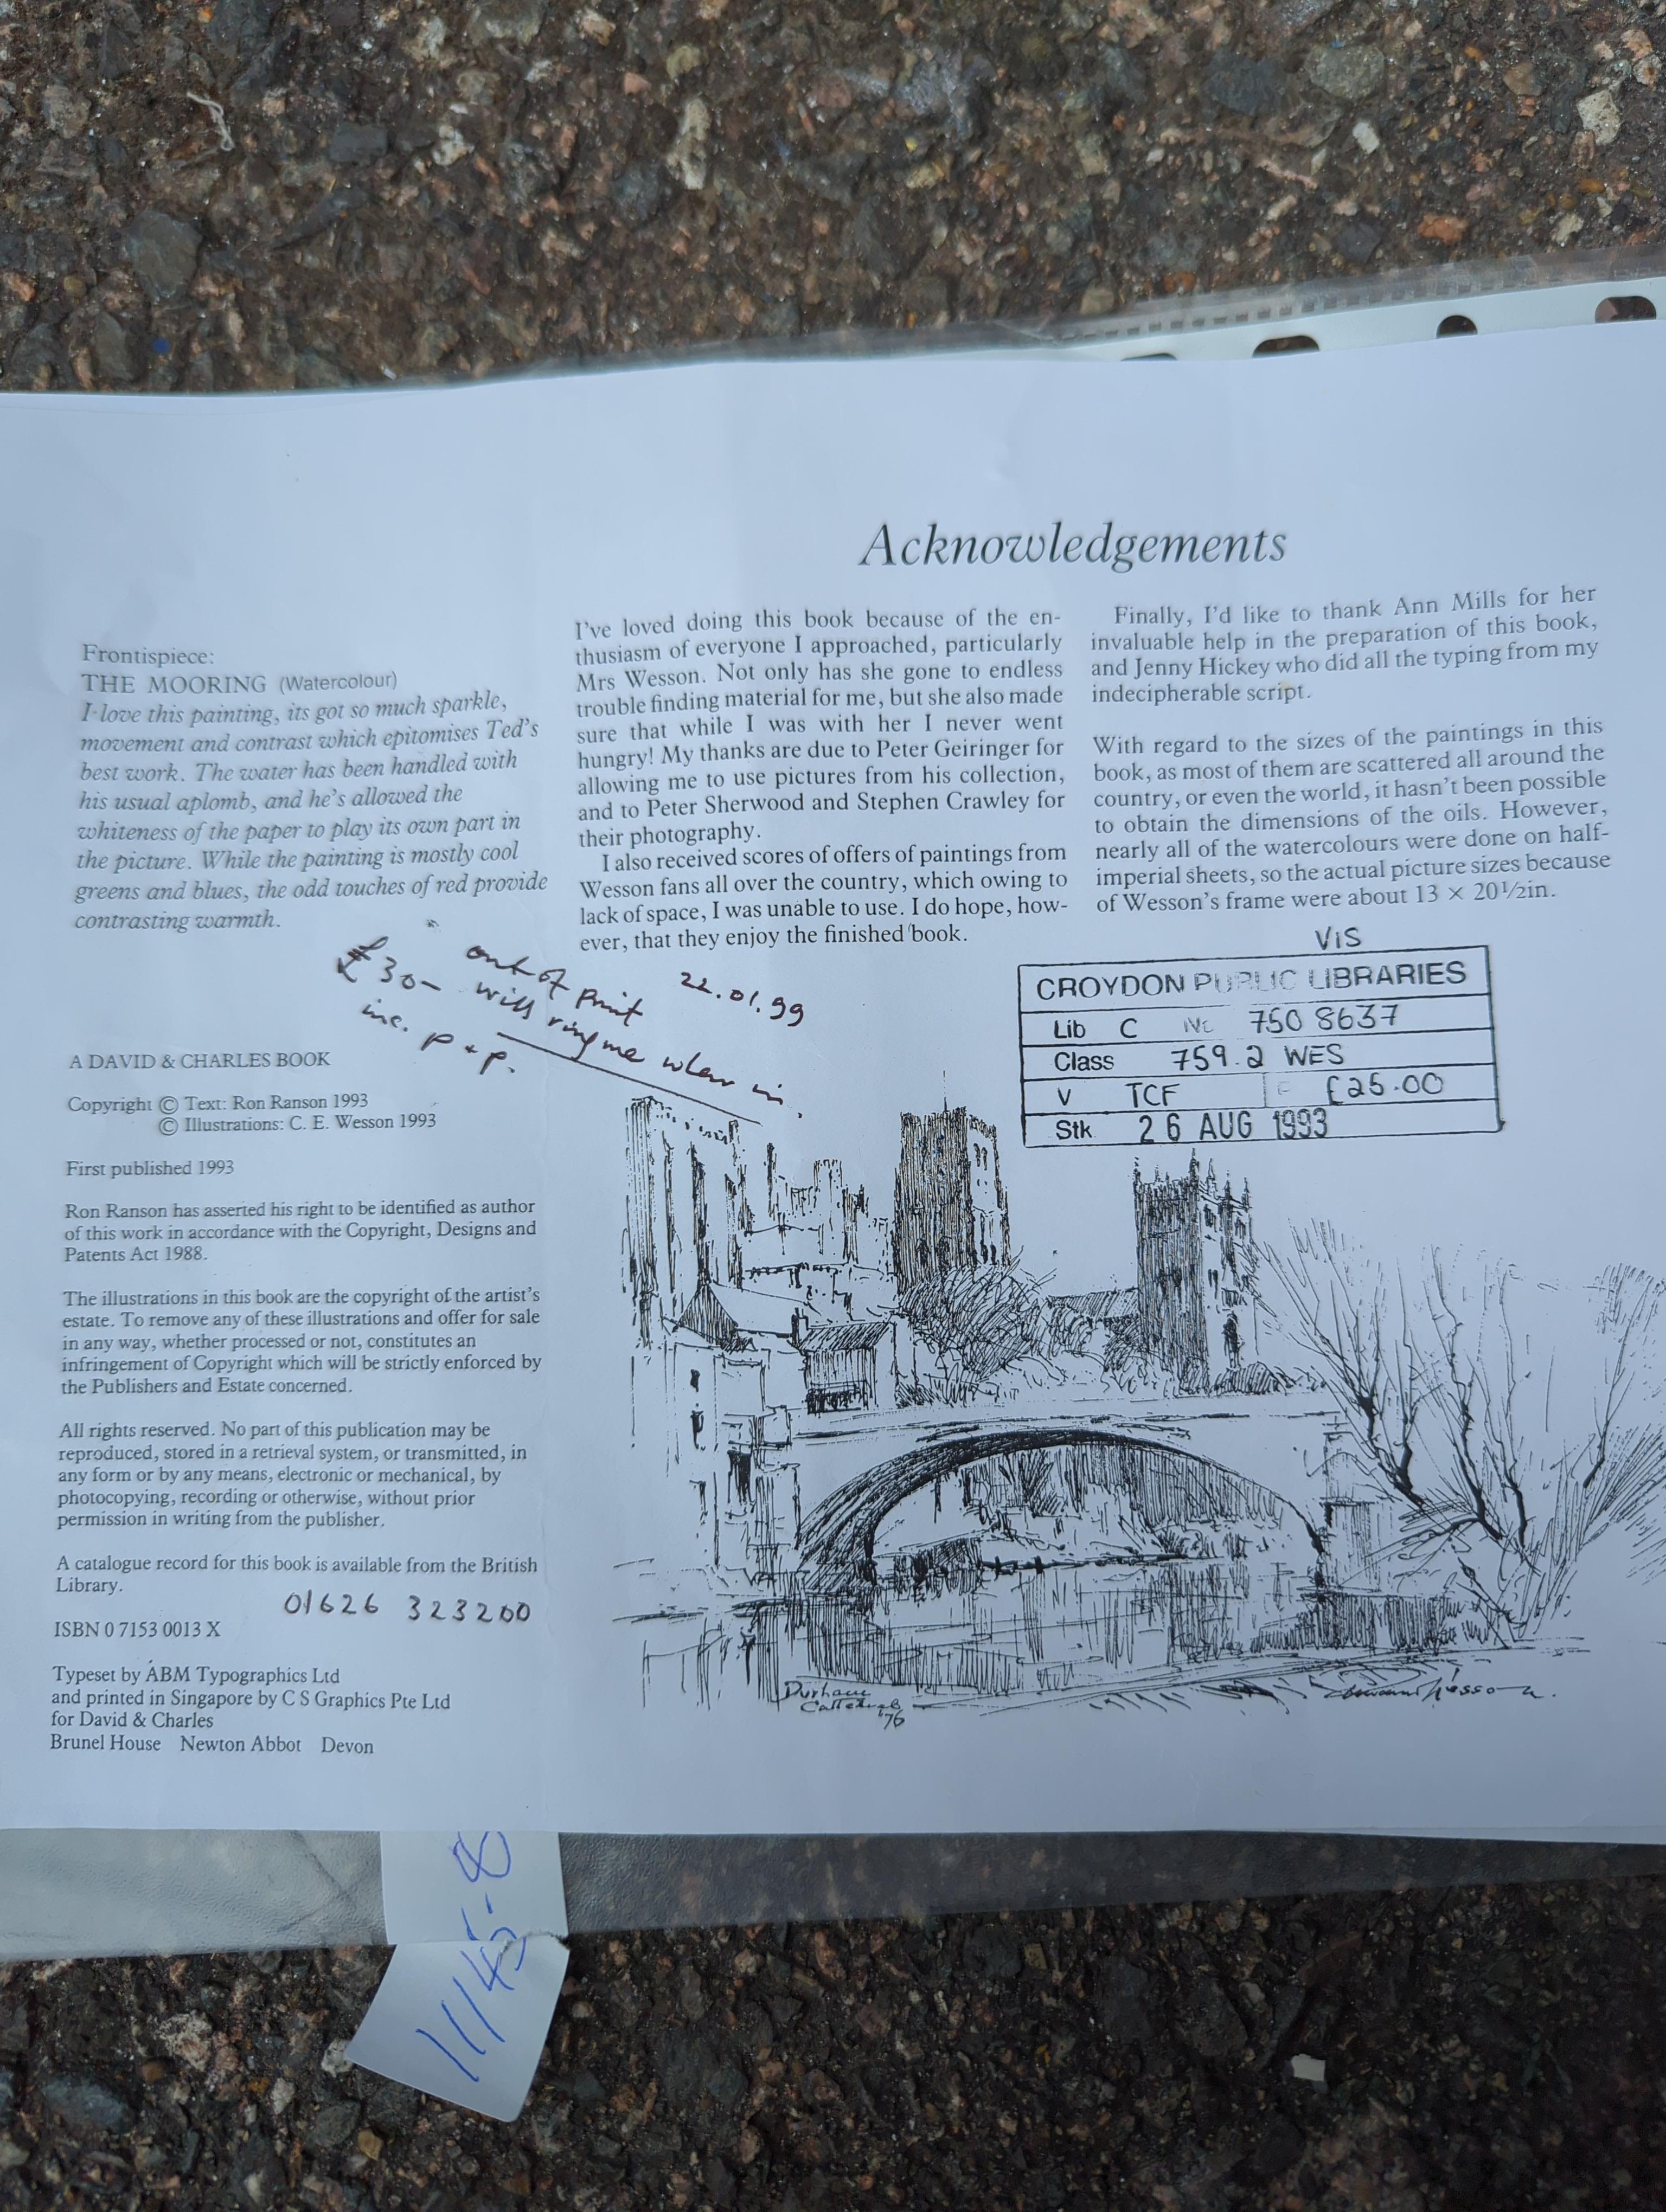 Acknowledgements
Frontispiece:
THE MOORING (Watercolour)
I love this painting, its got so much sparkle,
movement and contrast which epitomises Ted's
best work. The water has been handled with
his usual aplomb, and he's allowed the
whiteness of the paper to play its own part in
the picture. While the painting is mostly cool
greens and blues, the odd touches of red provide
contrasting warmth.
I've loved doing this book because of the en-
thusiasm of everyone I approached, particularly
Mrs Wesson. Not only has she gone to endless
trouble finding material for me, but she also made
sure that while I was with her I never went
hungry! My thanks are due to Peter Geiringer for
allowing me to use pictures from his collection,
and to Peter Sherwood and Stephen Crawley for
their photography.
I also received scores of offers of paintings from
Wesson fans all over the country, which owing to
lack of space, I was unable to use. I do hope, how-
ever, that they enjoy the finished book.
Finally, I'd like to thank Ann Mills for her
invaluable help in the preparation of this book,
and Jenny Hickey who did all the typing from my
indecipherable script.
With regard to the sizes of the paintings in this
book, as most of them are scattered all around the
country, or even the world, it hasn't been possible
to obtain the dimensions of the oils. However,
nearly all of the watercolours were done on half-
imperial sheets, so the actual picture sizes because
of Wesson's frame were about 13 × 20½in.
out of print 22.01.99
£30- will ring me when in.
inc. p + p.
VIS
CROYDON PUBLIC LIBRARIES
Lib C No 750 8637
Class 759.2 WES
V TCF £25.00
Stk 26 AUG 1993
A DAVID & CHARLES BOOK
Copyright © Text: Ron Ranson 1993
© Illustrations: C. E. Wesson 1993
First published 1993
Ron Ranson has asserted his right to be identified as author
of this work in accordance with the Copyright, Designs and
Patents Act 1988.
The illustrations in this book are the copyright of the artist's
estate. To remove any of these illustrations and offer for sale
in any way, whether processed or not, constitutes an
infringement of Copyright which will be strictly enforced by
the Publishers and Estate concerned.
All rights reserved. No part of this publication may be
reproduced, stored in a retrieval system, or transmitted, in
any form or by any means, electronic or mechanical, by
photocopying, recording or otherwise, without prior
permission in writing from the publisher.
A catalogue record for this book is available from the British
Library.
01626 323200
ISBN 0 7153 0013 X
Typeset by ABM Typographics Ltd
and printed in Singapore by C S Graphics Pte Ltd
for David & Charles
Brunel House Newton Abbot Devon
Durham
Cathedral
'76